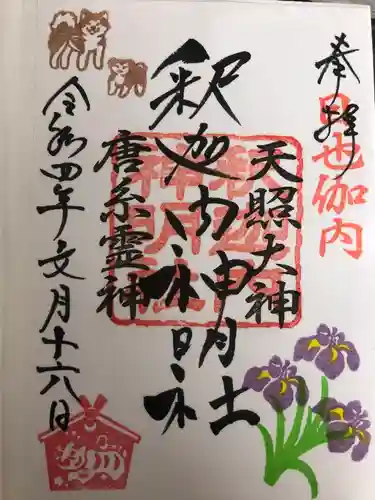 奉拝
也伽内
天照大神
釈迦内神明社
唐糸靈神
令和四年文月十六日